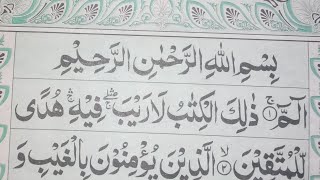 بِسْمِ اللهِ الرَّحْمٰنِ الرَّحِيْمِ
الٓمّٓ ۚ﴿۱﴾ ذٰلِكَ الْكِتٰبُ لَا رَيْبَ ۛۖ فِيْهِ ۛۚ هُدًى
لِّلْمُتَّقِيْنَ ۙ﴿۲﴾ الَّذِيْنَ يُؤْمِنُوْنَ بِالْغَيْبِ وَ